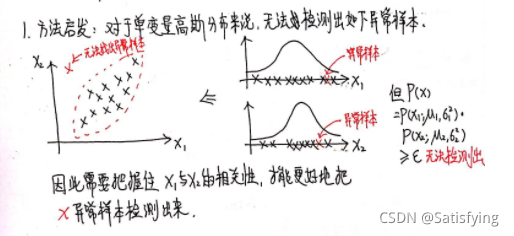 1. 方法启发：对于单变量高斯分布来说，无法检测出如下异常样本.
X₂
X 无法找出异常样本
X₁
⇐
异常样本
X₁
异常样本
X₂
但 P(X)
=P(X₁;μ₁,σ₁²)·
P(X₂;μ₂,σ₂²)
≥ε 无法检测出
因此需要把握住 X₁与X₂的相关性，才能更好地把
X 异常样本检测出来.
CSDN @Satisfying